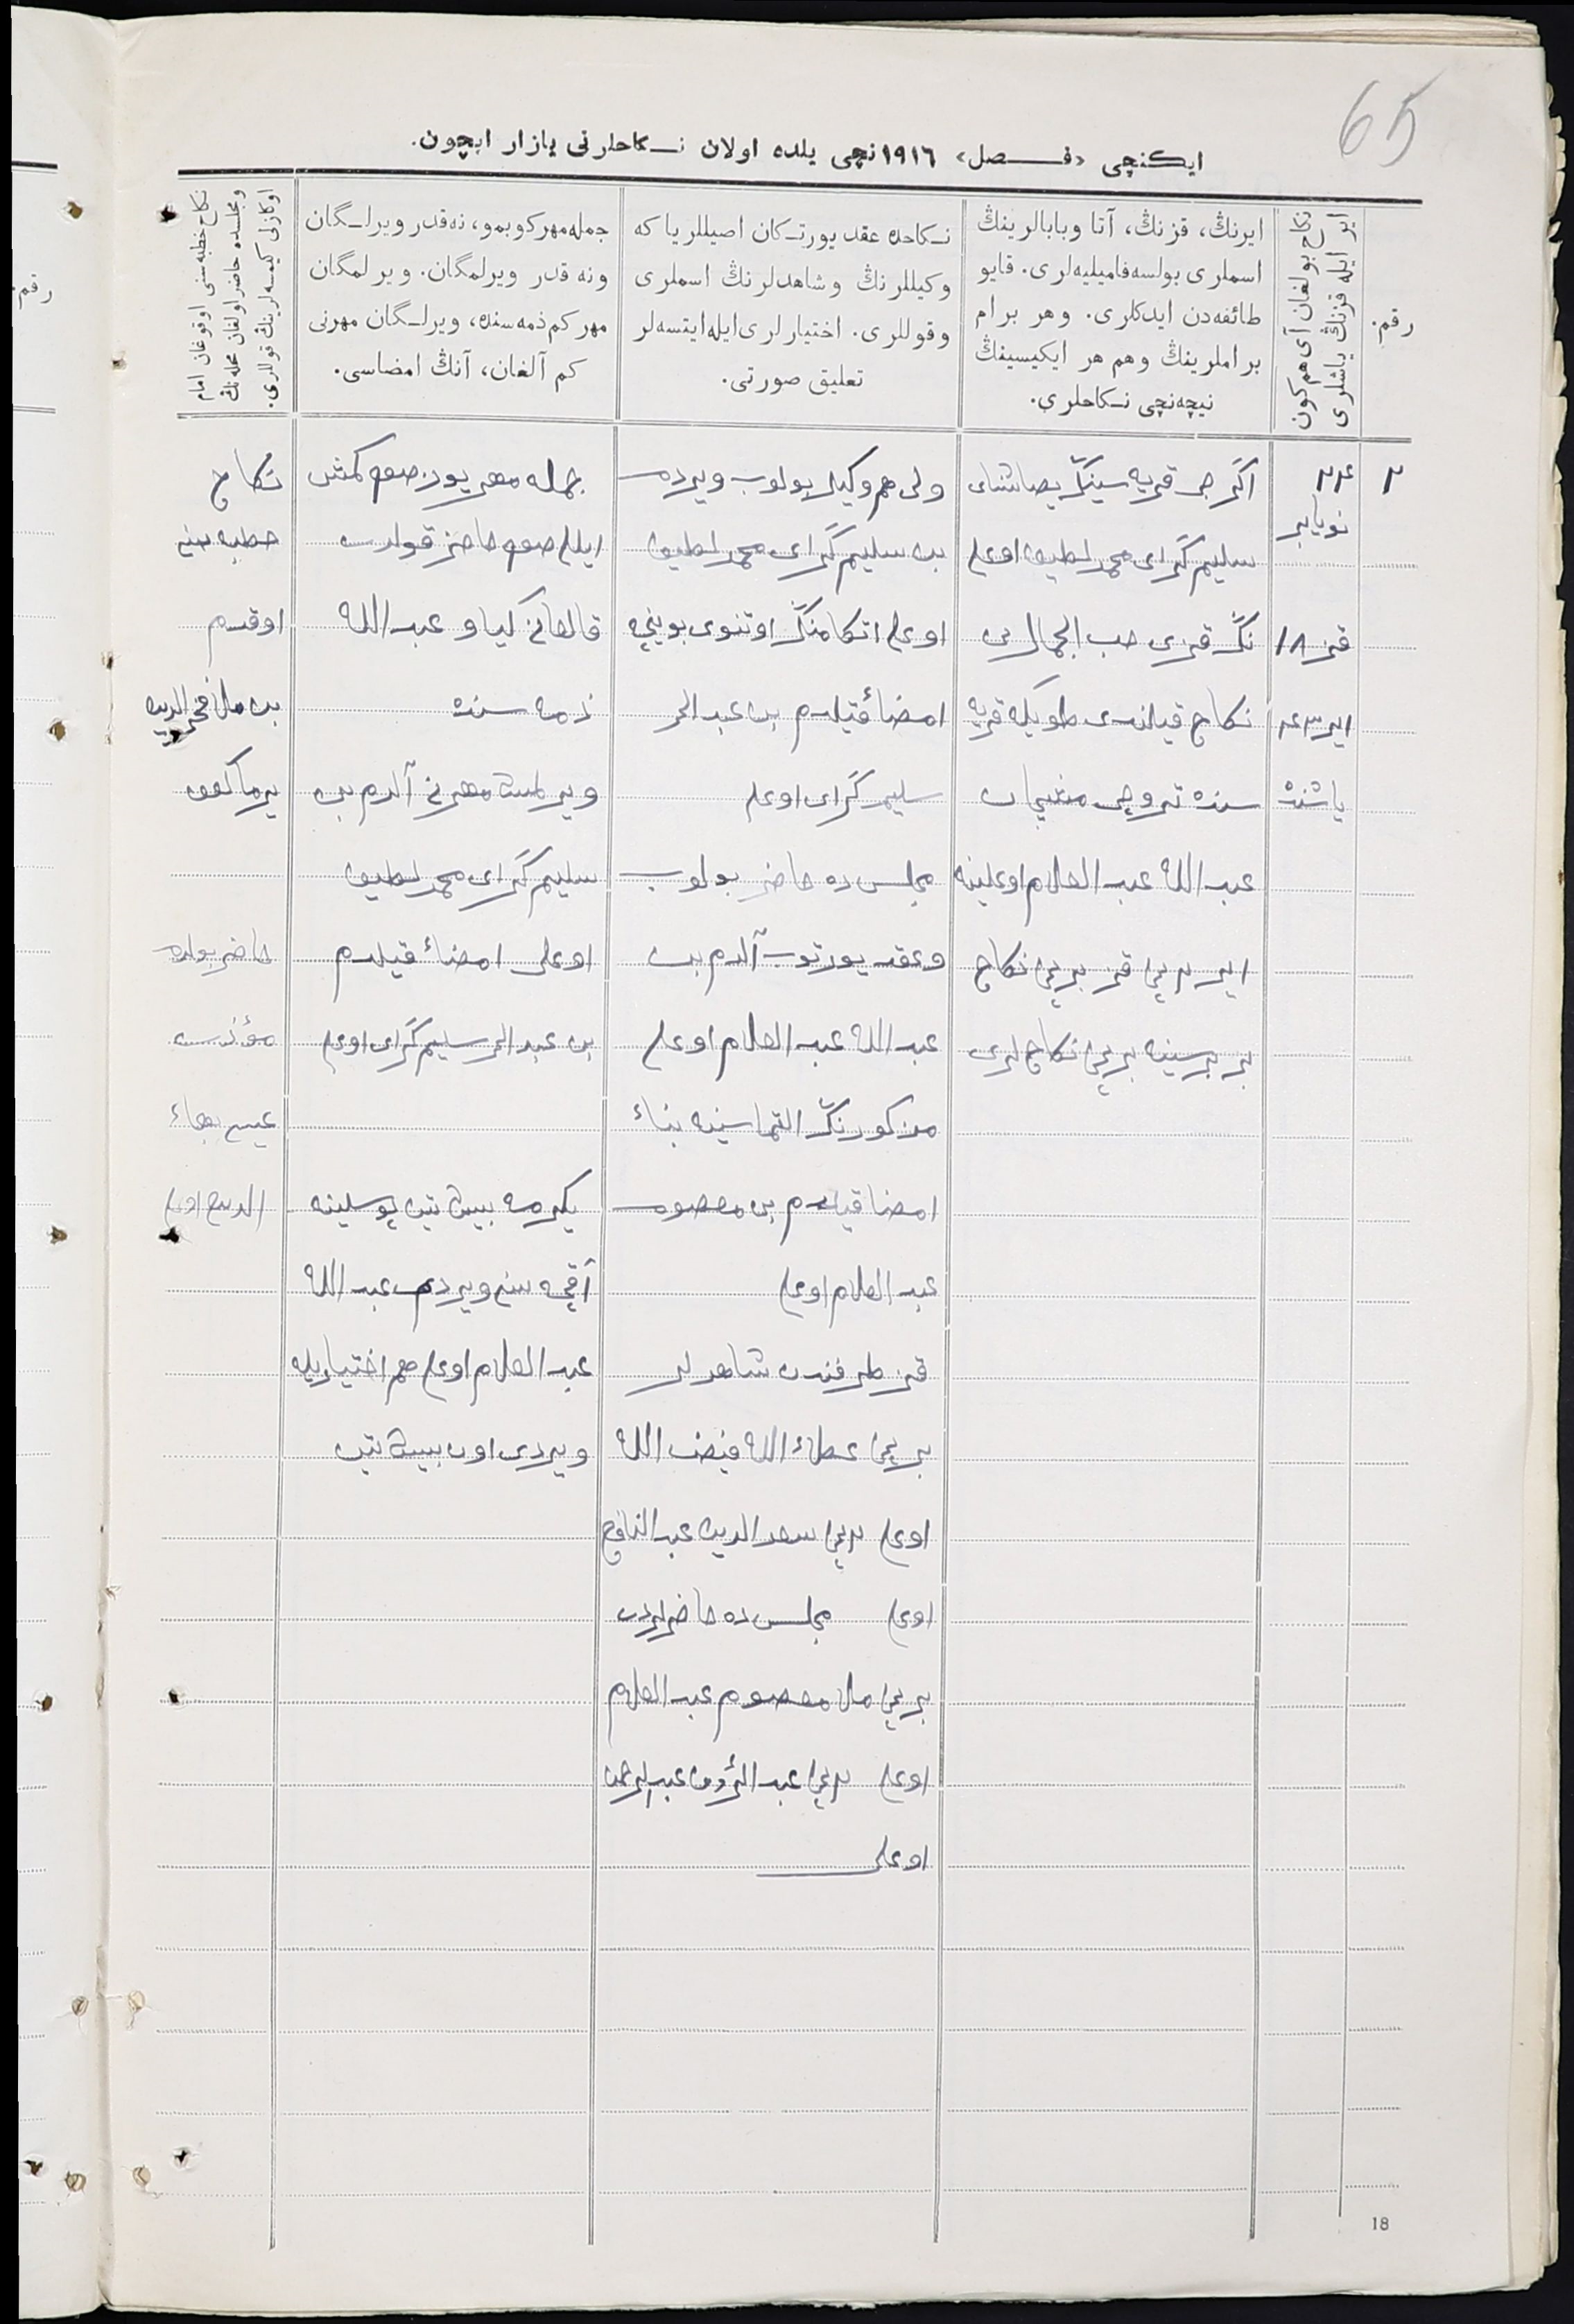 65
ایكنچی «فصل» ١٩١٦ نچی یلده اولان نكاحلرنی یازار ایچون.
رقم:
نكاح بولغان آی هم كون
ایر ایله قزنڭ یاشلری
ایرنڭ، قزنڭ، آتا وبابالرینڭ
اسملری بولسه فامیلیه‌لری. قایو
طائفه‌دن ایدكلری. وهر برام
براملرینڭ وهم هر ایكیسینڭ
نیچه‌نچی نكاحلری.
نكاحده عقد یورتكان اصیللر یا كه
وكیللرنڭ وشاهدلرنڭ اسملری
وقوللری. اختیارلری ایله ایتسه‌لر
تعلیق صورتی.
جمله مهر كوبمو، نه‌قدر ویرلگان
ونه قدر ویرلمگان. ویرلمگان
مهر كم ذمه‌سنده، ویرلگان مهرنی
كم آلغان، آنڭ امضاسی.
نكاح خطبه‌سنی اوقوغان امام
ومجلسده حاضر اولغان محله‌نڭ
اوكازلی كیمسه‌لرینڭ قوللری.
رقم:
٢
٢٤
نویابر
قز ١٨
ایر ٣٤
یاشنده
سلیم گرای محمد لطیف اوغلی
نڭ قزی حب الجمال نی
نكاح قیلندی قریه
سنده
عبد الله عبد العلام اوغلینه
ایر برنچی قز برنچی نكاح
بر برسینه برنچی نكاح لری
ولی هم وكیل بولوب ویردم
بن سلیم گرای محمد لطیف
اوغلی اتكامنڭ اوتنوی بوینچه
امضاء قیلدم بن عبد الحی
سلیم گرای اوغلی
مجلس ده حاضر بولوب
وعقد یورتوب آلدم بن
عبد الله عبد العلام اوغلی
مذكورنڭ التماسینه بناء
امضا قیلدم بن معصوم
عبد العلام اوغلی
قز طرفندن شاهدلر
برنچی عطاء الله فیض الله
اوغلی برنچی سعد الدین عبد النافع
اوغلی مجلس ده حاضرلردن
برنچی ملا معصوم عبد العلام
اوغلی برنچی عبد الرؤف عبد الرحمن
اوغلی
جمله مهر یوز صوم كمش
ایللی صوم حاضر قولده
قالغانی كیاو عبد الله
ذمه سنده
ویرلمش مهرنی آلدم بن
سلیم گرای محمد لطیف
اوغلی امضاء قیلدم
بن عبد الحی سلیم گرای اوغلی
یكرمه بیش تین پوسلینه
آقچه سنی ویردم عبد الله
عبد العلام اوغلی هم اختیاریله
ویردی اون بیش تین
نكاح
خطبه سنی
اوقدم
بن ملا فخر الدین
حاضر بولدم
مؤذن
الدین اوغلی
18